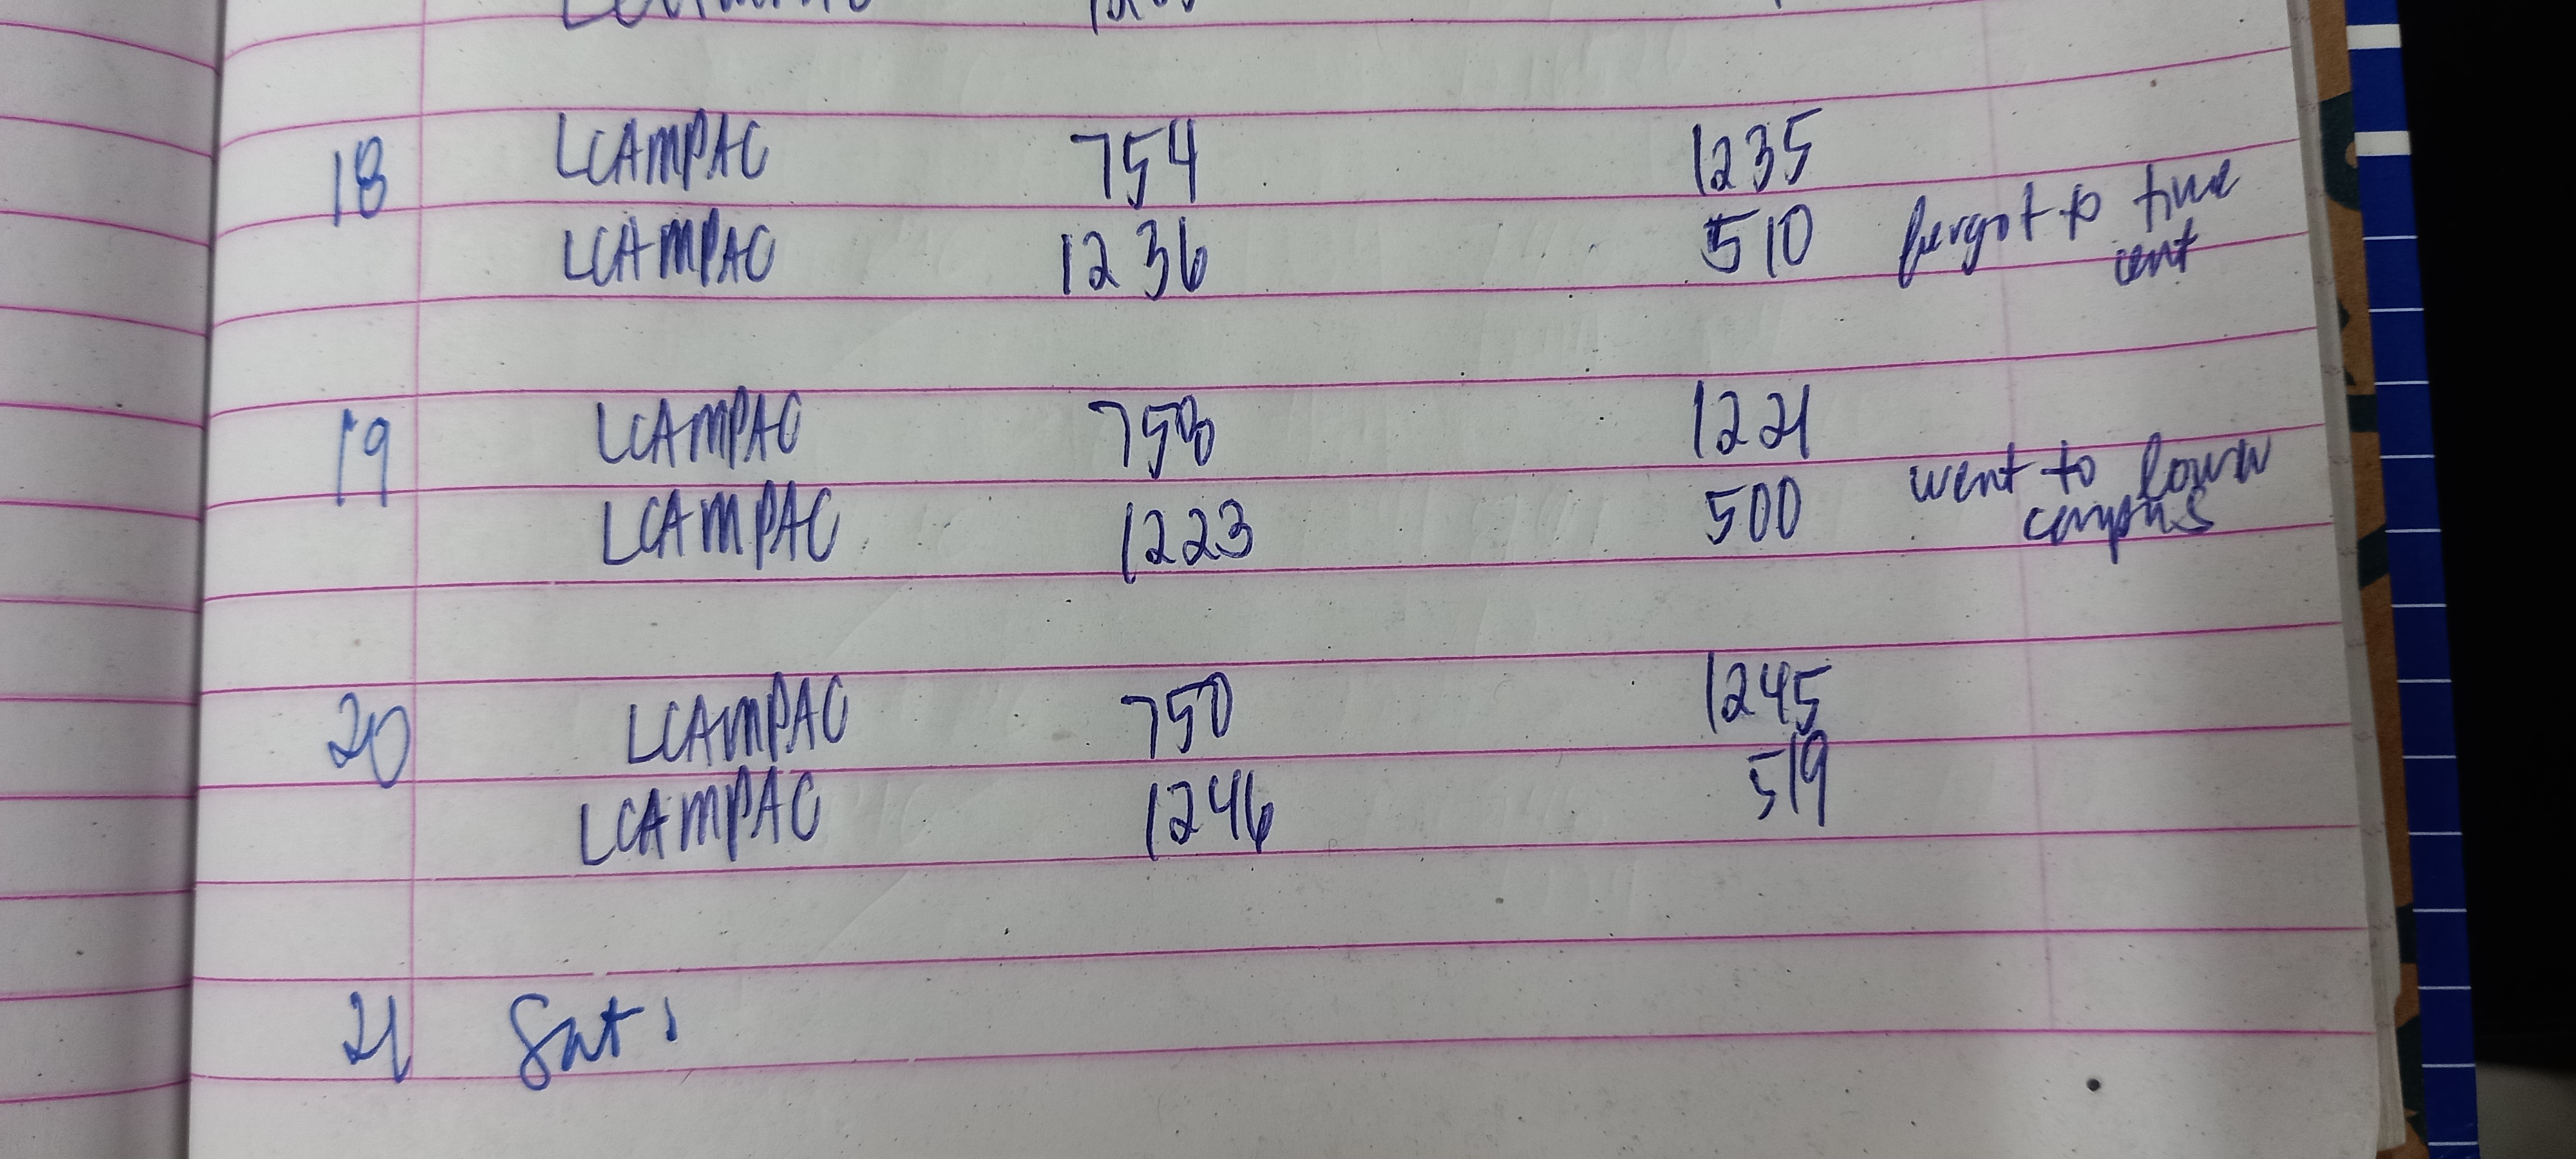 18 LCAMPAC 754 1235
LCAMPAC 1236 510 forgot to time out
19 LCAMPAC 758 1221
LCAMPAC 1223 500 went to lower campus
20 LCAMPAC 750 1245
LCAMPAC 1246 519
21 Sat.